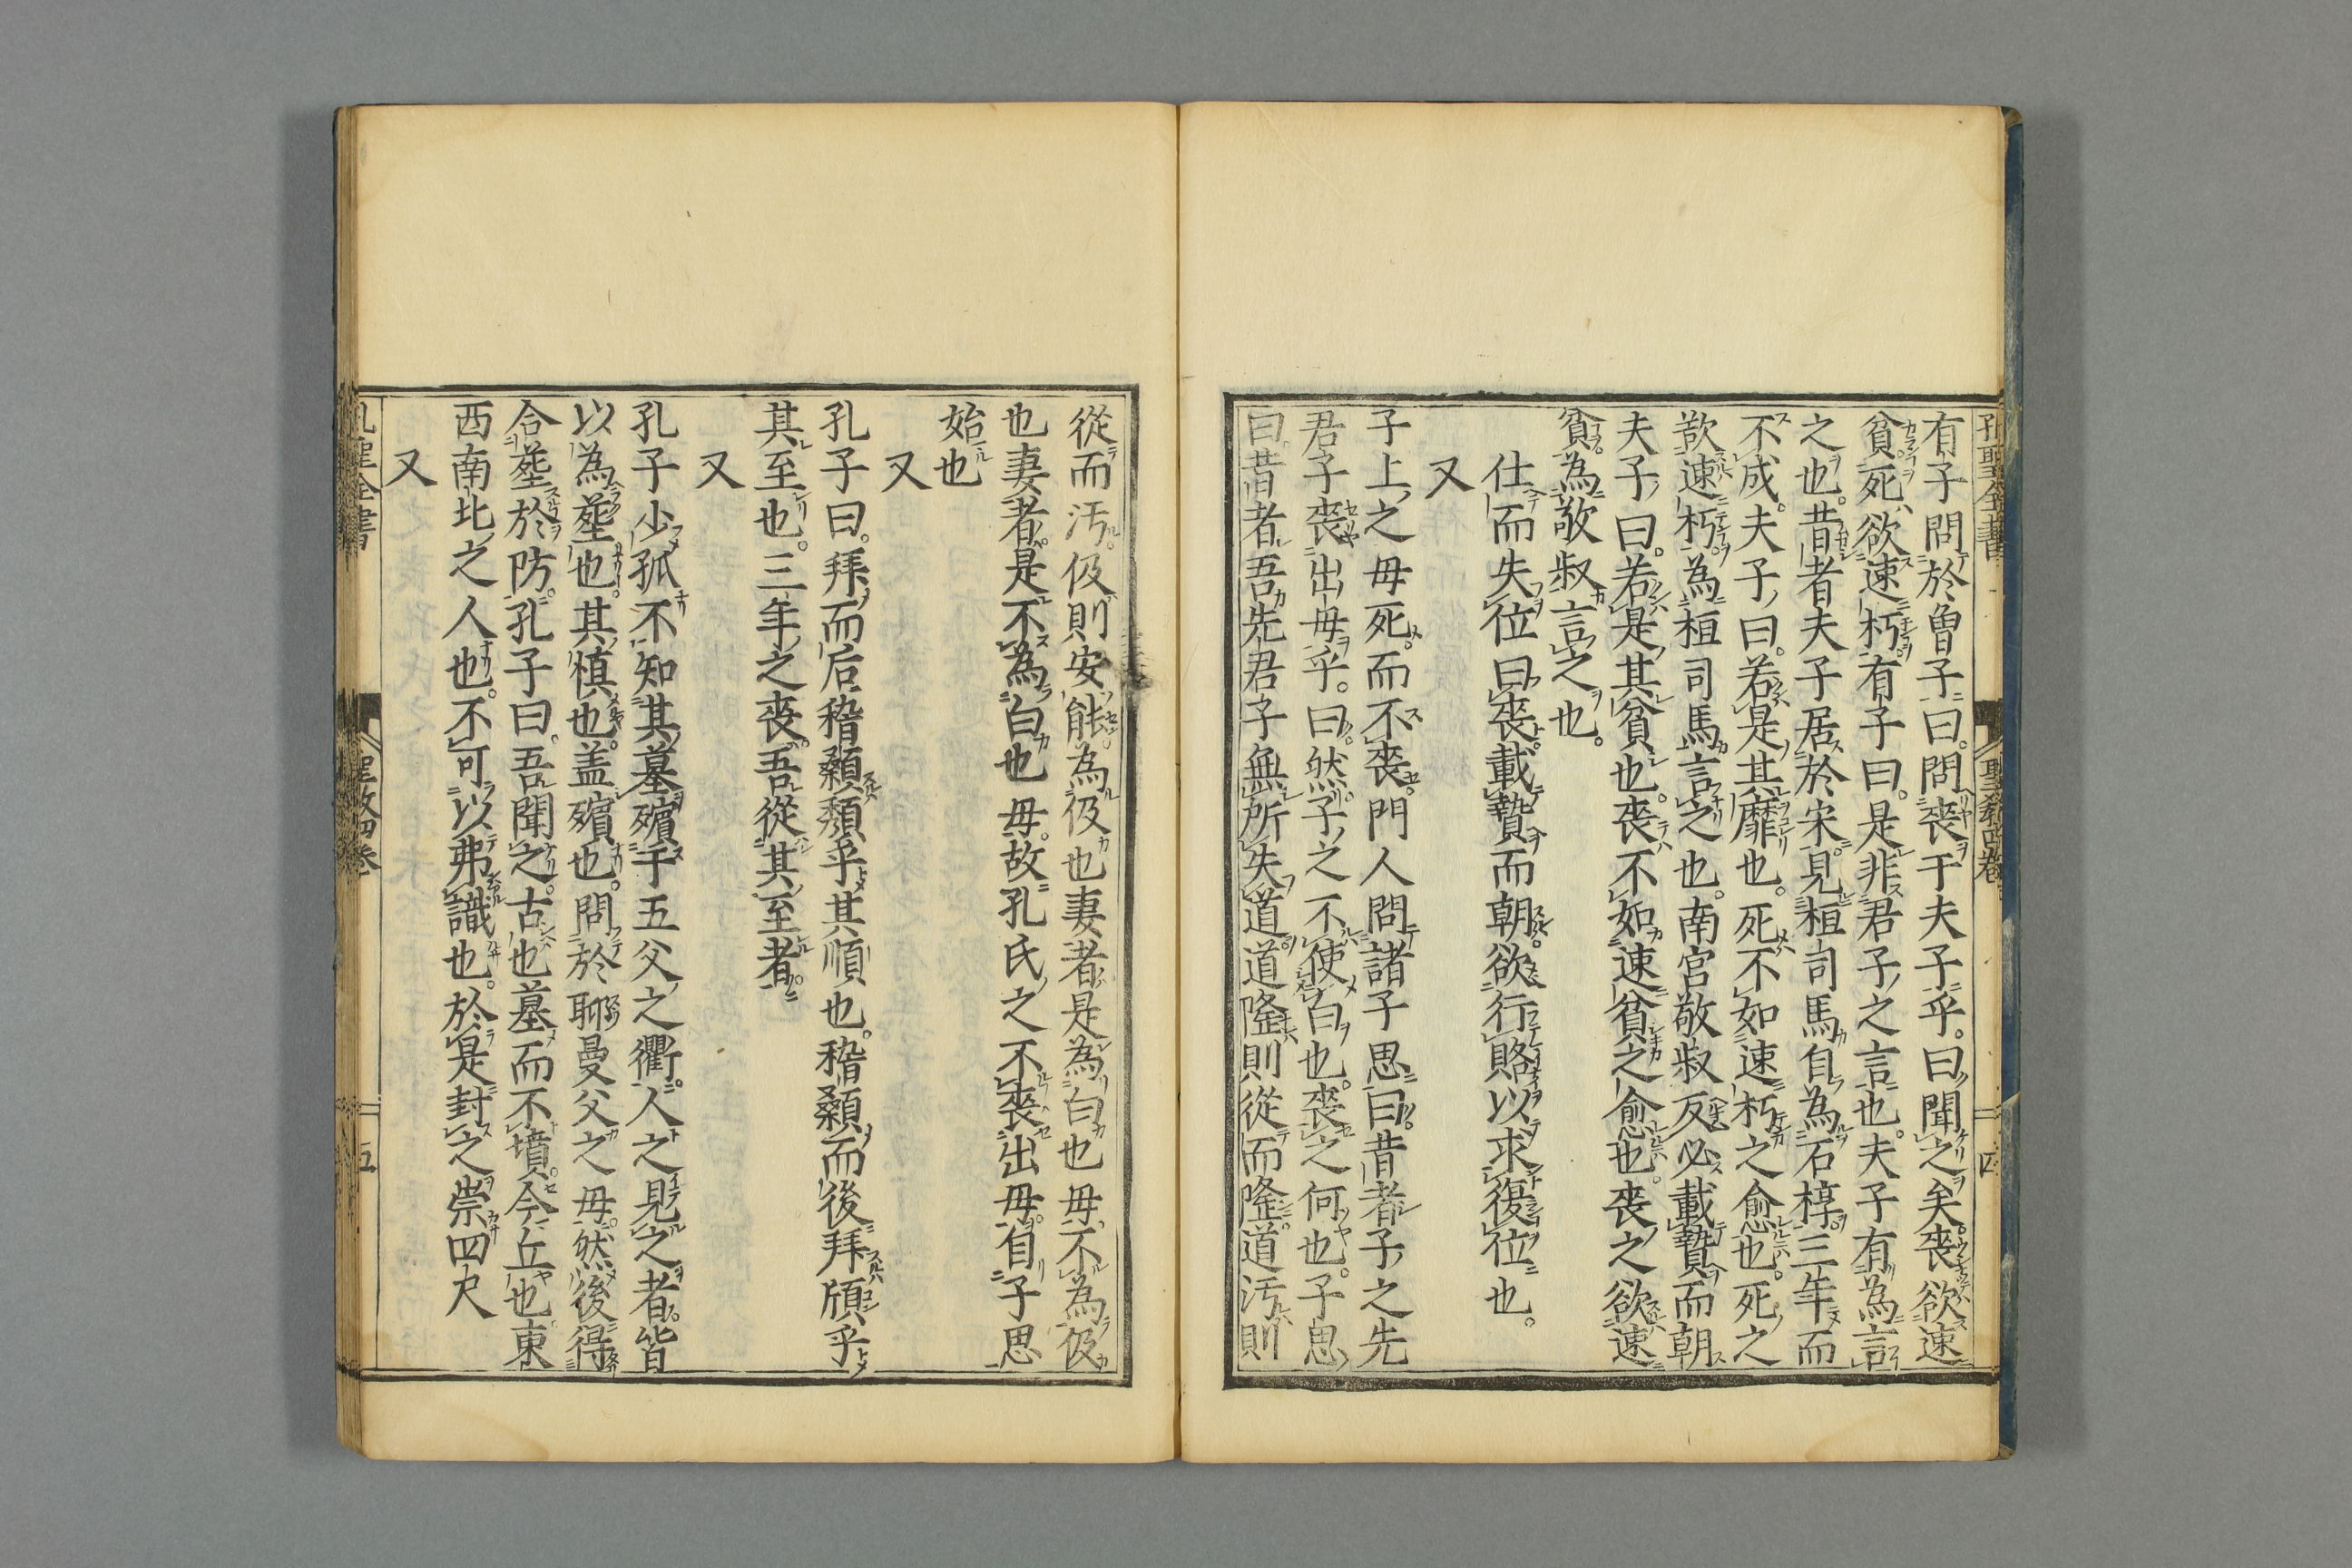 孔聖全書 聖教四卷 四
有子問於曽子曰。問喪于夫子乎。曰聞之矣喪欲速
貧。死欲速朽。有子曰。是非君子之言也。夫子有為言
之也。昔者夫子居於宋見桓司馬自為石椁三年而
不成。夫子曰。若是其靡也。死不如速朽之愈也。死之
欲速朽為桓司馬言之也。南宮敬叔反必載贄而朝
夫子曰。若是其貧也。喪不如速貧之愈也。喪之欲速
貧。為敬叔言之也。
仕而失位曰喪。載贄而朝。欲行賂以求復位也。
又
子上之母死。而不喪。門人問諸子思曰。昔者子之先
君子喪出母乎。曰。然。子之不使白也。喪之何也。子思
曰。昔者吾先君子無所失道。道隆則從而隆。道汚則
從而汚。伋則安能。為伋也妻者。是為白也母。不為伋
也妻者。是不為白也母。故孔氏之不喪出母。自子思
始也
又
孔子曰。拜而后稽顙頽乎其順也。稽顙而後拜頎乎
其至也。三年之喪。吾從其至者。
又
孔子少孤不知其墓殯于五父之衢。人之見之者。皆
以為塟也。其慎也。盖殯也。問於郰曼父之母。然後得
合塟於防。孔子曰。吾聞之。古也墓而不墳。今丘也東
西南北之人也。不可以弗識也。於是封之崇四尺
又
孔聖全書 聖教四卷 五